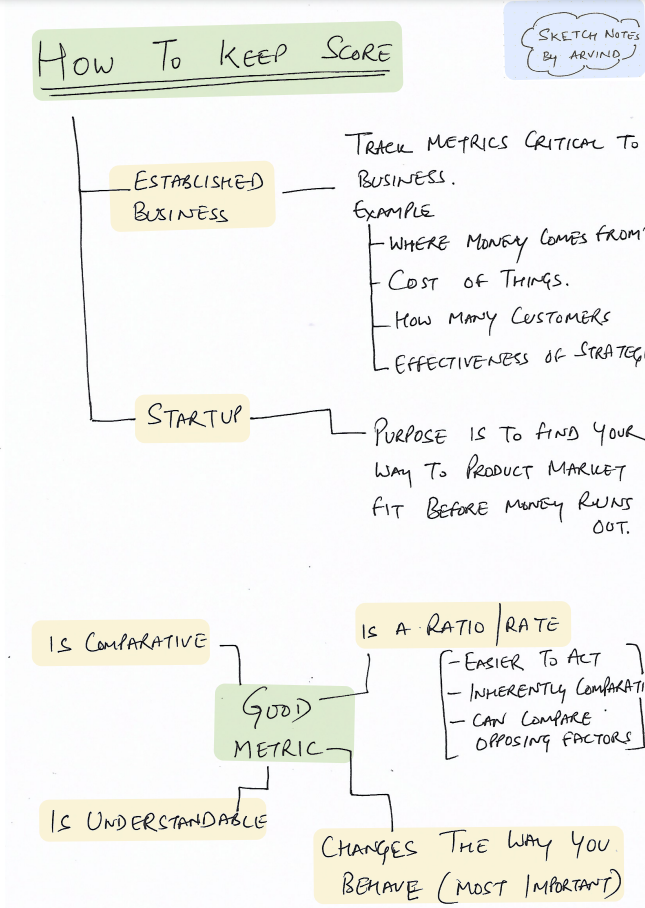 How To Keep Score
SKETCH NOTES
By ARVIND
ESTABLISHED
BUSINESS
TRACK METRICS CRITICAL TO
BUSINESS.
EXAMPLE
- WHERE MONEY COMES FROM
- COST OF THINGS.
- HOW MANY CUSTOMERS
- EFFECTIVENESS OF STRATEG
STARTUP
PURPOSE IS TO FIND YOUR
WAY TO PRODUCT MARKET
FIT BEFORE MONEY RUNS
OUT.
IS COMPARATIVE
IS A RATIO/RATE
- EASIER TO ACT
- INHERENTLY COMPARATI
- CAN COMPARE
OPPOSING FACTORS
GOOD
METRIC
IS UNDERSTANDABLE
CHANGES THE WAY YOU
BEHAVE (MOST IMPORTANT)